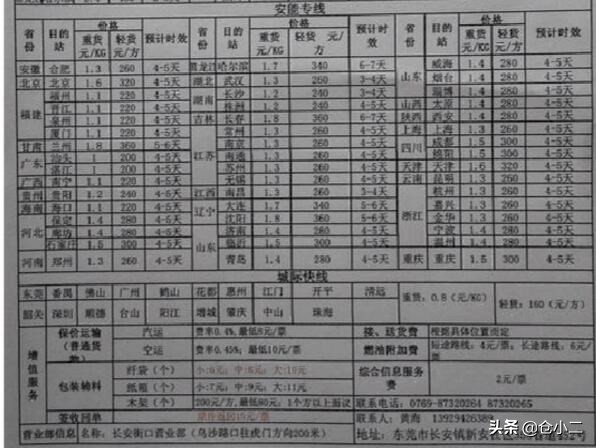 安能专线
省份 目的站 价格 预计时效 省份 目的站 价格 预计时效 省份 目的站 价格 预计时效
重货 元/KG 轻货 元/方 重货 元/KG 轻货 元/方 重货 元/KG 轻货 元/方
安徽 合肥 1.3 260 4-5天 黑龙江 哈尔滨 1.7 340 6-7天 山东 威海 1.4 280 4-5天
北京 北京 1.6 320 4-5天 湖北 武汉 1.3 260 3-4天 烟台 1.4 280 4-5天
福建 福州 1.1 220 4-5天 湖南 长沙 1.2 240 3-4天 淄博 1.4 280 4-5天
晋江 1.1 220 4-5天 株洲 1.2 240 3-4天 山西 太原 1.4 280 4-5天
泉州 1.1 220 4-5天 吉林 长春 1.8 360 6-7天 陕西 西安 1.4 280 4-5天
厦门 1.1 220 4-5天 江苏 常州 1.3 260 4-5天 上海 上海 1.3 260 4-5天
甘肃 兰州 1.8 360 5-6天 南京 1.3 260 4-5天 四川 成都 1.5 300 4-5天
广东 汕头 1 200 4-5天 南通 1.3 260 4-5天 绵阳 1.5 300 4-5天
湛江 1 200 4-5天 苏州 1.3 260 4-5天 天津 天津 1.6 320 4-5天
广西 南宁 1.1 220 4-5天 无锡 1.3 260 4-5天 云南 昆明 1.3 260 4-5天
贵州 贵阳 1.2 240 4-5天 江西 南昌 1.3 260 3-4天 浙江 杭州 1.3 260 4-5天
海南 海口 1.1 220 4-5天 辽宁 大连 1.7 340 5-6天 嘉兴 1.3 260 4-5天
河北 保定 1.4 280 4-5天 沈阳 1.8 360 5-6天 金华 1.3 260 4-5天
廊坊 1.4 280 4-5天 山东 济南 1.4 280 4-5天 宁波 1.4 280 4-5天
石家庄 1.5 300 4-5天 临沂 1.5 300 4-5天 温州 1.4 280 4-5天
河南 郑州 1.3 260 4-5天 青岛 1.4 280 4-5天 重庆 重庆 1.5 300 4-5天
城际快线
东莞 番禺 佛山 广州 鹤山 花都 惠州 江门 开平 清远 重货:0.8(元/KG) 轻货:160(元/方)
韶关 深圳 顺德 台山 阳江 增城 肇庆 中山 珠海
增值服务 保价运输(普通货物) 汽运 费率0.4%,最低8元/票 接、送货费 根据具体位置而定
空运 费率0.45%,最低10元/票 燃油附加费 短途路线:4元/票;长途路线:6元/票
包装辅料 纤袋(个) 小:6元;中:8元;大:10元 综合信息服务费 2元/票
纸箱(个) 小:7元;中:9元;大:11元
木架(个) 200元/方,最低80元;1个方以上面议 联系电话:0769-87320264 87320265
签收回单 原件返回15元/票 联系人:黄海 13929426389
营业部信息 名称:长安街口营业部(乌沙路口往虎门方向200米) 地址:东莞市长安镇新安社区
头条 @仓小二